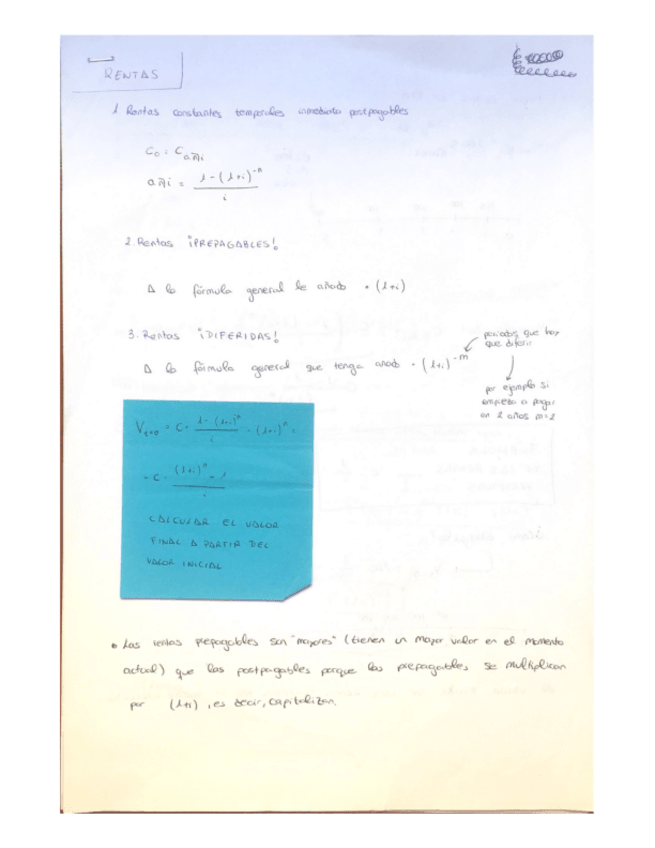 RENTAS
1 Rentas constantes temporales inmediata postpagables
C₀ = C a n̅| i
a n̅| i = 1-(1+i)⁻ⁿ / i
2. Rentas ¡PREPAGABLES!
A la fórmula general le añado · (1+i)
3. Rentas ¡DIFERIDAS!
A la fórmula general que tenga añado · (1+i)⁻ᵐ
periodos que hay
que diferir
por ejemplo si
empiezo a pagar
en 2 años m=2
= C · (1+i)ⁿ - 1 / i
CALCULAR EL VALOR
FINAL A PARTIR DEL
VALOR INICIAL
• Las rentas prepagables son "mayores" (tienen un mayor valor en el momento
actual) que las postpagables porque las prepagables se multiplican
por (1+i), es decir, capitalizan.